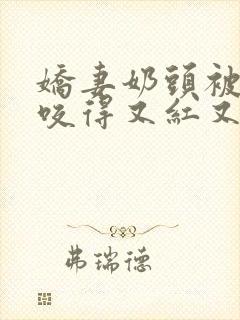 嬌妻奶頭被
咬得又紅又
弗瑞德